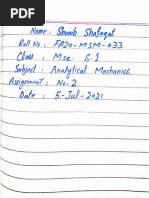 Name : Shoaib Shafaqat
Roll No : FA20-MSM-033
Class : Msc. S.1
Subject : Analytical Mechanics.
Assignment : No. 2
Date : 5-Jul-2021